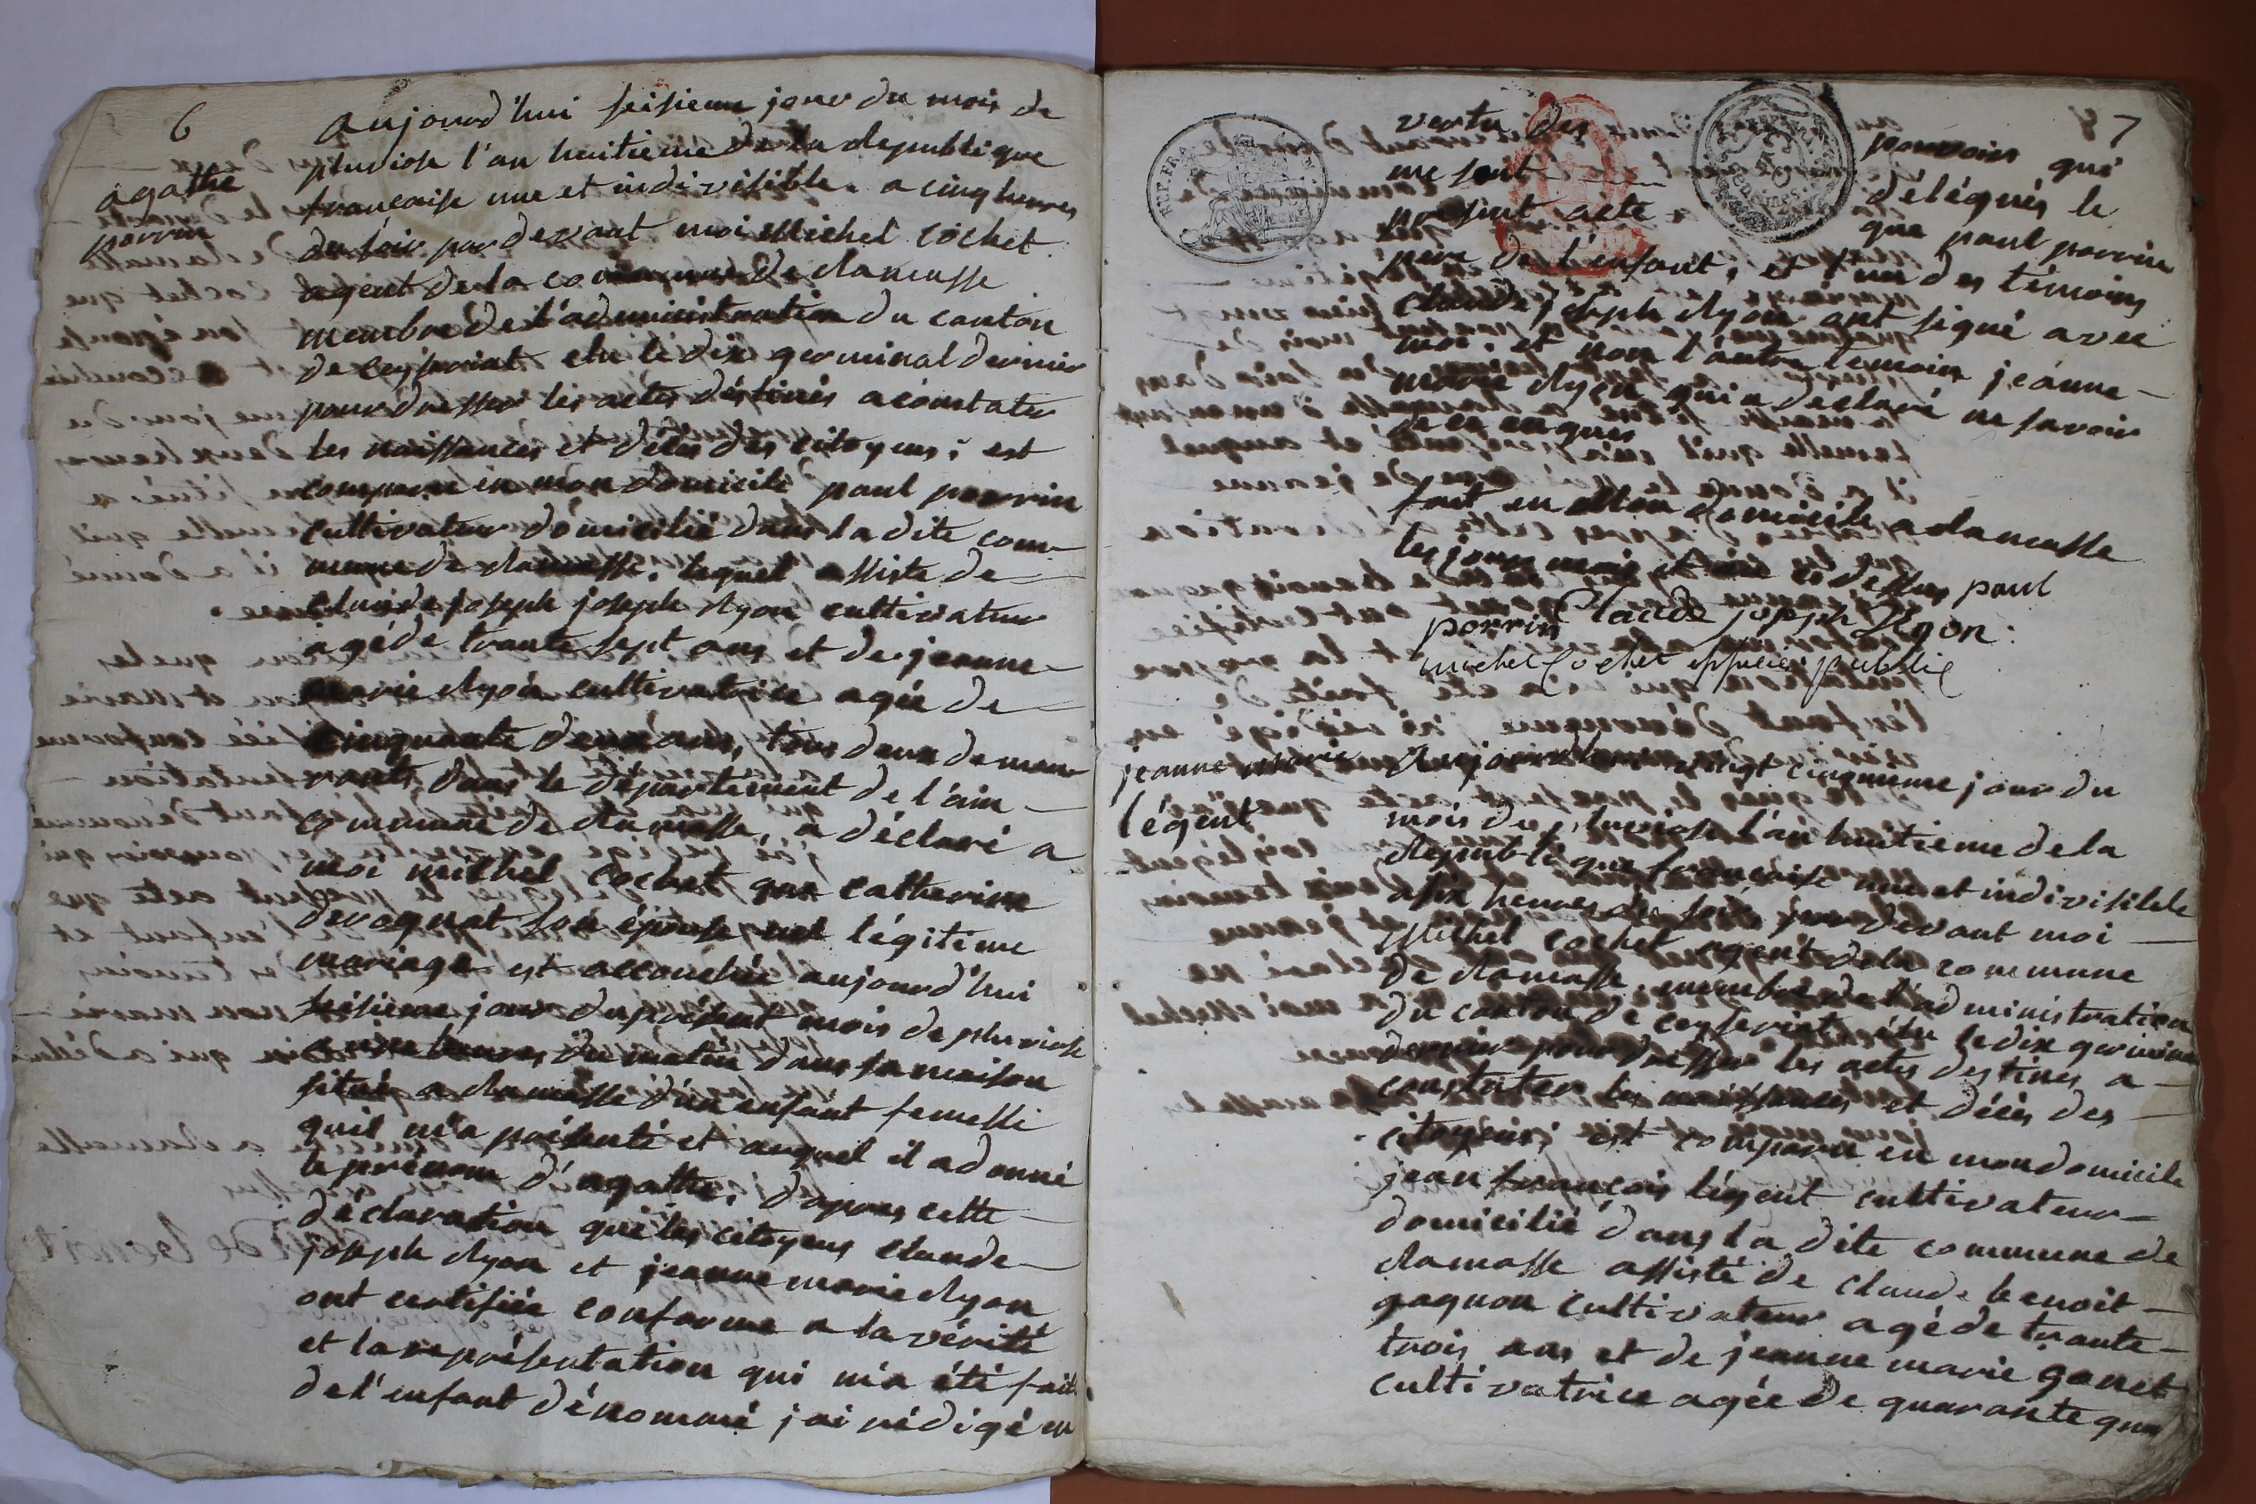 6
agathe
porrin
aujourd'hui seisieme jour du mois de
pluviose l'an huitieme de la Republique
francaise une et indivisible. a cinq heures
du soir par devant moi Michel Cochet
agent de la commune de Ramasse
membre de l'administration du canton
de Ceyseriat elu le dix germinal dernier
pour dresser les actes déstinés a constater
les naissances et décés des citoyens ; est
comparu en mon domicile paul porrin
cultivateur domicilié dans la dite com-
mune de Ramasse, lequel assisté de
claude joseph joseph Ryon cultivateur
agé de trante sept ans et de jeanne-
marie Ryon cultivatrice agée de
cinquante deux ans, tous deux demeu-
rants dans le département de l'ain
commune de Ramasse, a déclaré a
moi michel cochet que catherine
son épouse légitime
mariage est accouchée aujourd'hui
seisieme jour du présent mois de pluviose
a heures du matin dans sa maison
située a Ramasse d'un enfant femelle
quil m'a présenté et auquel il a donné
le prénom d'agathe, d'apres cette
déclaration que les citoyens claude-
joseph Ryon et jeanne marie Ryon
ont certifiée conforme a la vérité
et la représentation qui m'a été faite
de l'enfant dénommé j'ai rédigé en
7
vertu des pouvoirs qui
me sont délégués le
présent acte que paul porrin
pere de l'enfant, et l'un des témoins
claude joseph Ryon ont signé avec
moi, et non l'autre temoin jeanne-
marie Ryon qui a declaré ne savoir
de ce enquis
fait en Mon domicile a Ramasse
les jours mois et an ci dessus paul
porrin Claude joseph Ryon.
michel Cochet officier public
jeanne marie
légent
Aujourd'hui vingt cinquieme jour du
mois de pluviose l'an huitieme de la
Republique francaise une et indivisible
a six heures du soir, par devant moi
Michel Cochet agent de la commune
de Ramasse, membre de l'administration
du canton de ceyseriat élu le dix germinal
dernier pour dresser les actes destinés a
constater les naissances et décés des
citoyens; est comparu en mon domicile
jean francois légent cultivateur
domicilié dans la dite commune de
Ramasse assisté de claude benoit
gagnon cultivateur agé de trante-
trois ans et de jeanne marie ganet
cultivatrice agée de quarante qua